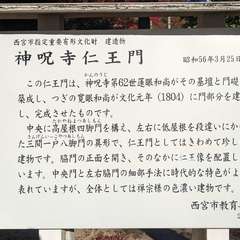 西宮市指定重要有形文化財 建造物
神呪寺仁王門
昭和56年3月25日
かんのうじ
この仁王門は、神呪寺第62世蓮眼和尚がその基壇と門礎
築成し、つぎの寛眼和尚が文化元年(1804)に門部分を建
し、完成させたものです。
たかやねよつあしもん
中央に高屋根四脚門を構え、左右に低屋根を段違いにか
さんげんいっこやつあしもん
た三間一戸八脚門の異形で、仁王門としてはきわめて珍し
建物です。脇門の正面を開き、そのなかに二王像を配置し
います。中央門と左右脇門の細部手法に時代的な特色がよ
表れていますが、全体としては禅宗様の色濃い建物です。
西宮市教育